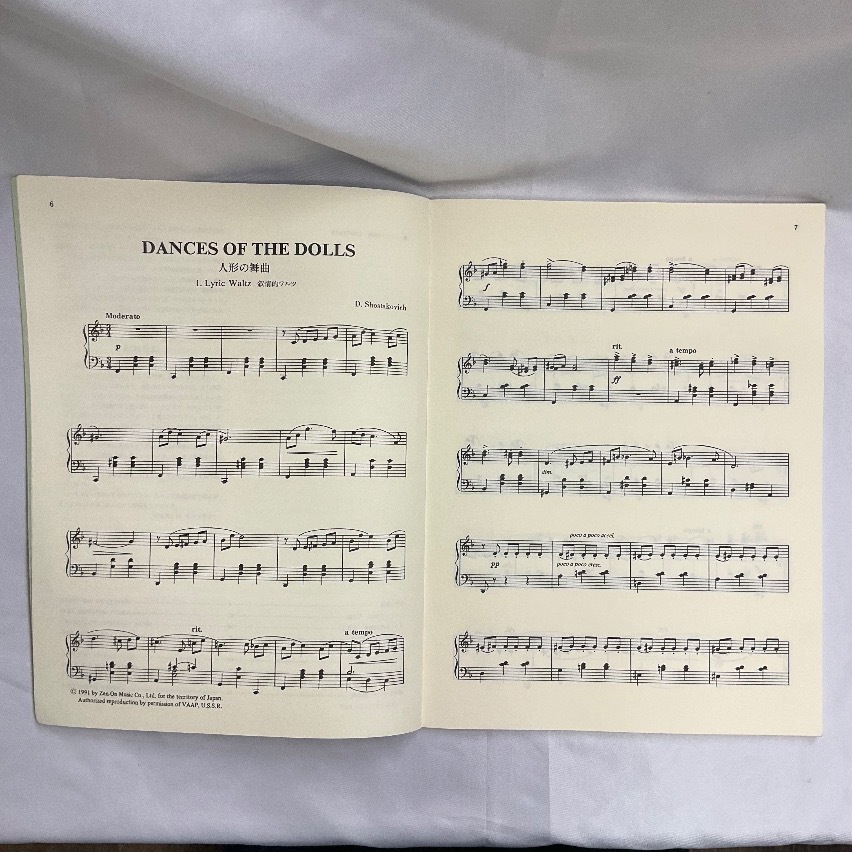 6
DANCES OF THE DOLLS
人形の舞曲
1. Lyric Waltz 叙情的ワルツ
D. Shostakovich
Moderato
p
rit.
a tempo
© 1991 by Zen-On Music Co., Ltd. for the territory of Japan.
Authorized reproduction by permission of VAAP, U.S.S.R.
7
f
rit.
a tempo
ff
dim.
poco a poco accel.
pp
poco a poco cresc.